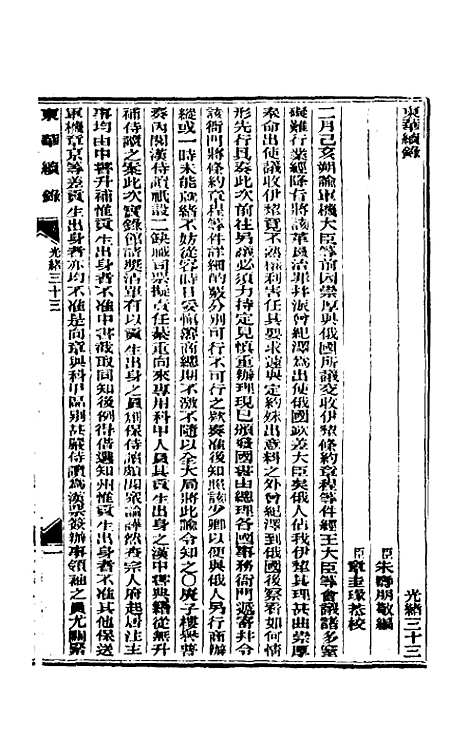 東華續錄
光緒三十三
臣朱壽朋敬編
臣童圭璋恭校
二月己亥朔諭軍機大臣等前因崇厚與俄國所議交收伊犂條約章程等件經王大臣等會議諸多窒
礙難行業經降旨將該革員治罪並派曾紀澤為出使俄國欽差大臣矣俄人佔我伊犂其理甚曲崇厚
奉命出使議收伊犂竟不熟權利害任其要求遽與定約殊出意料之外曾紀澤到俄國後察看如何情
形先行具奏此次前往另議必須力持定見慎重辦理現已頒發國書由總理各國事務衙門遞寄幷令
該衙門將條約章程等件詳細酌覈分別可行不可行之款奏准後知照該少卿以便與俄人另行商辦
縱或一時未能就緒不妨從容時日妥慎籌商總期不激不隨以全大局將此諭令知之○庚子樓譽普
奏內閣漢侍讀祇設二缺職司票擬責任綦重向來專用科甲人員其貢生出身之漢中書典籍從無升
補侍讀之案此次實錄館請獎清單有以貢生出身之員列保侍讀頗聞眾論譁然查宗人府起居注主
事均由中書升補惟貢生出身者不准中書截取同知後例得借選知州惟貢生出身者不准其他保送
軍機章京等差貢生出身者亦均不准是向章與科甲區別甚嚴侍讀為漢票簽辦事領袖之員尤關緊
東華續錄
光緒三十三
一